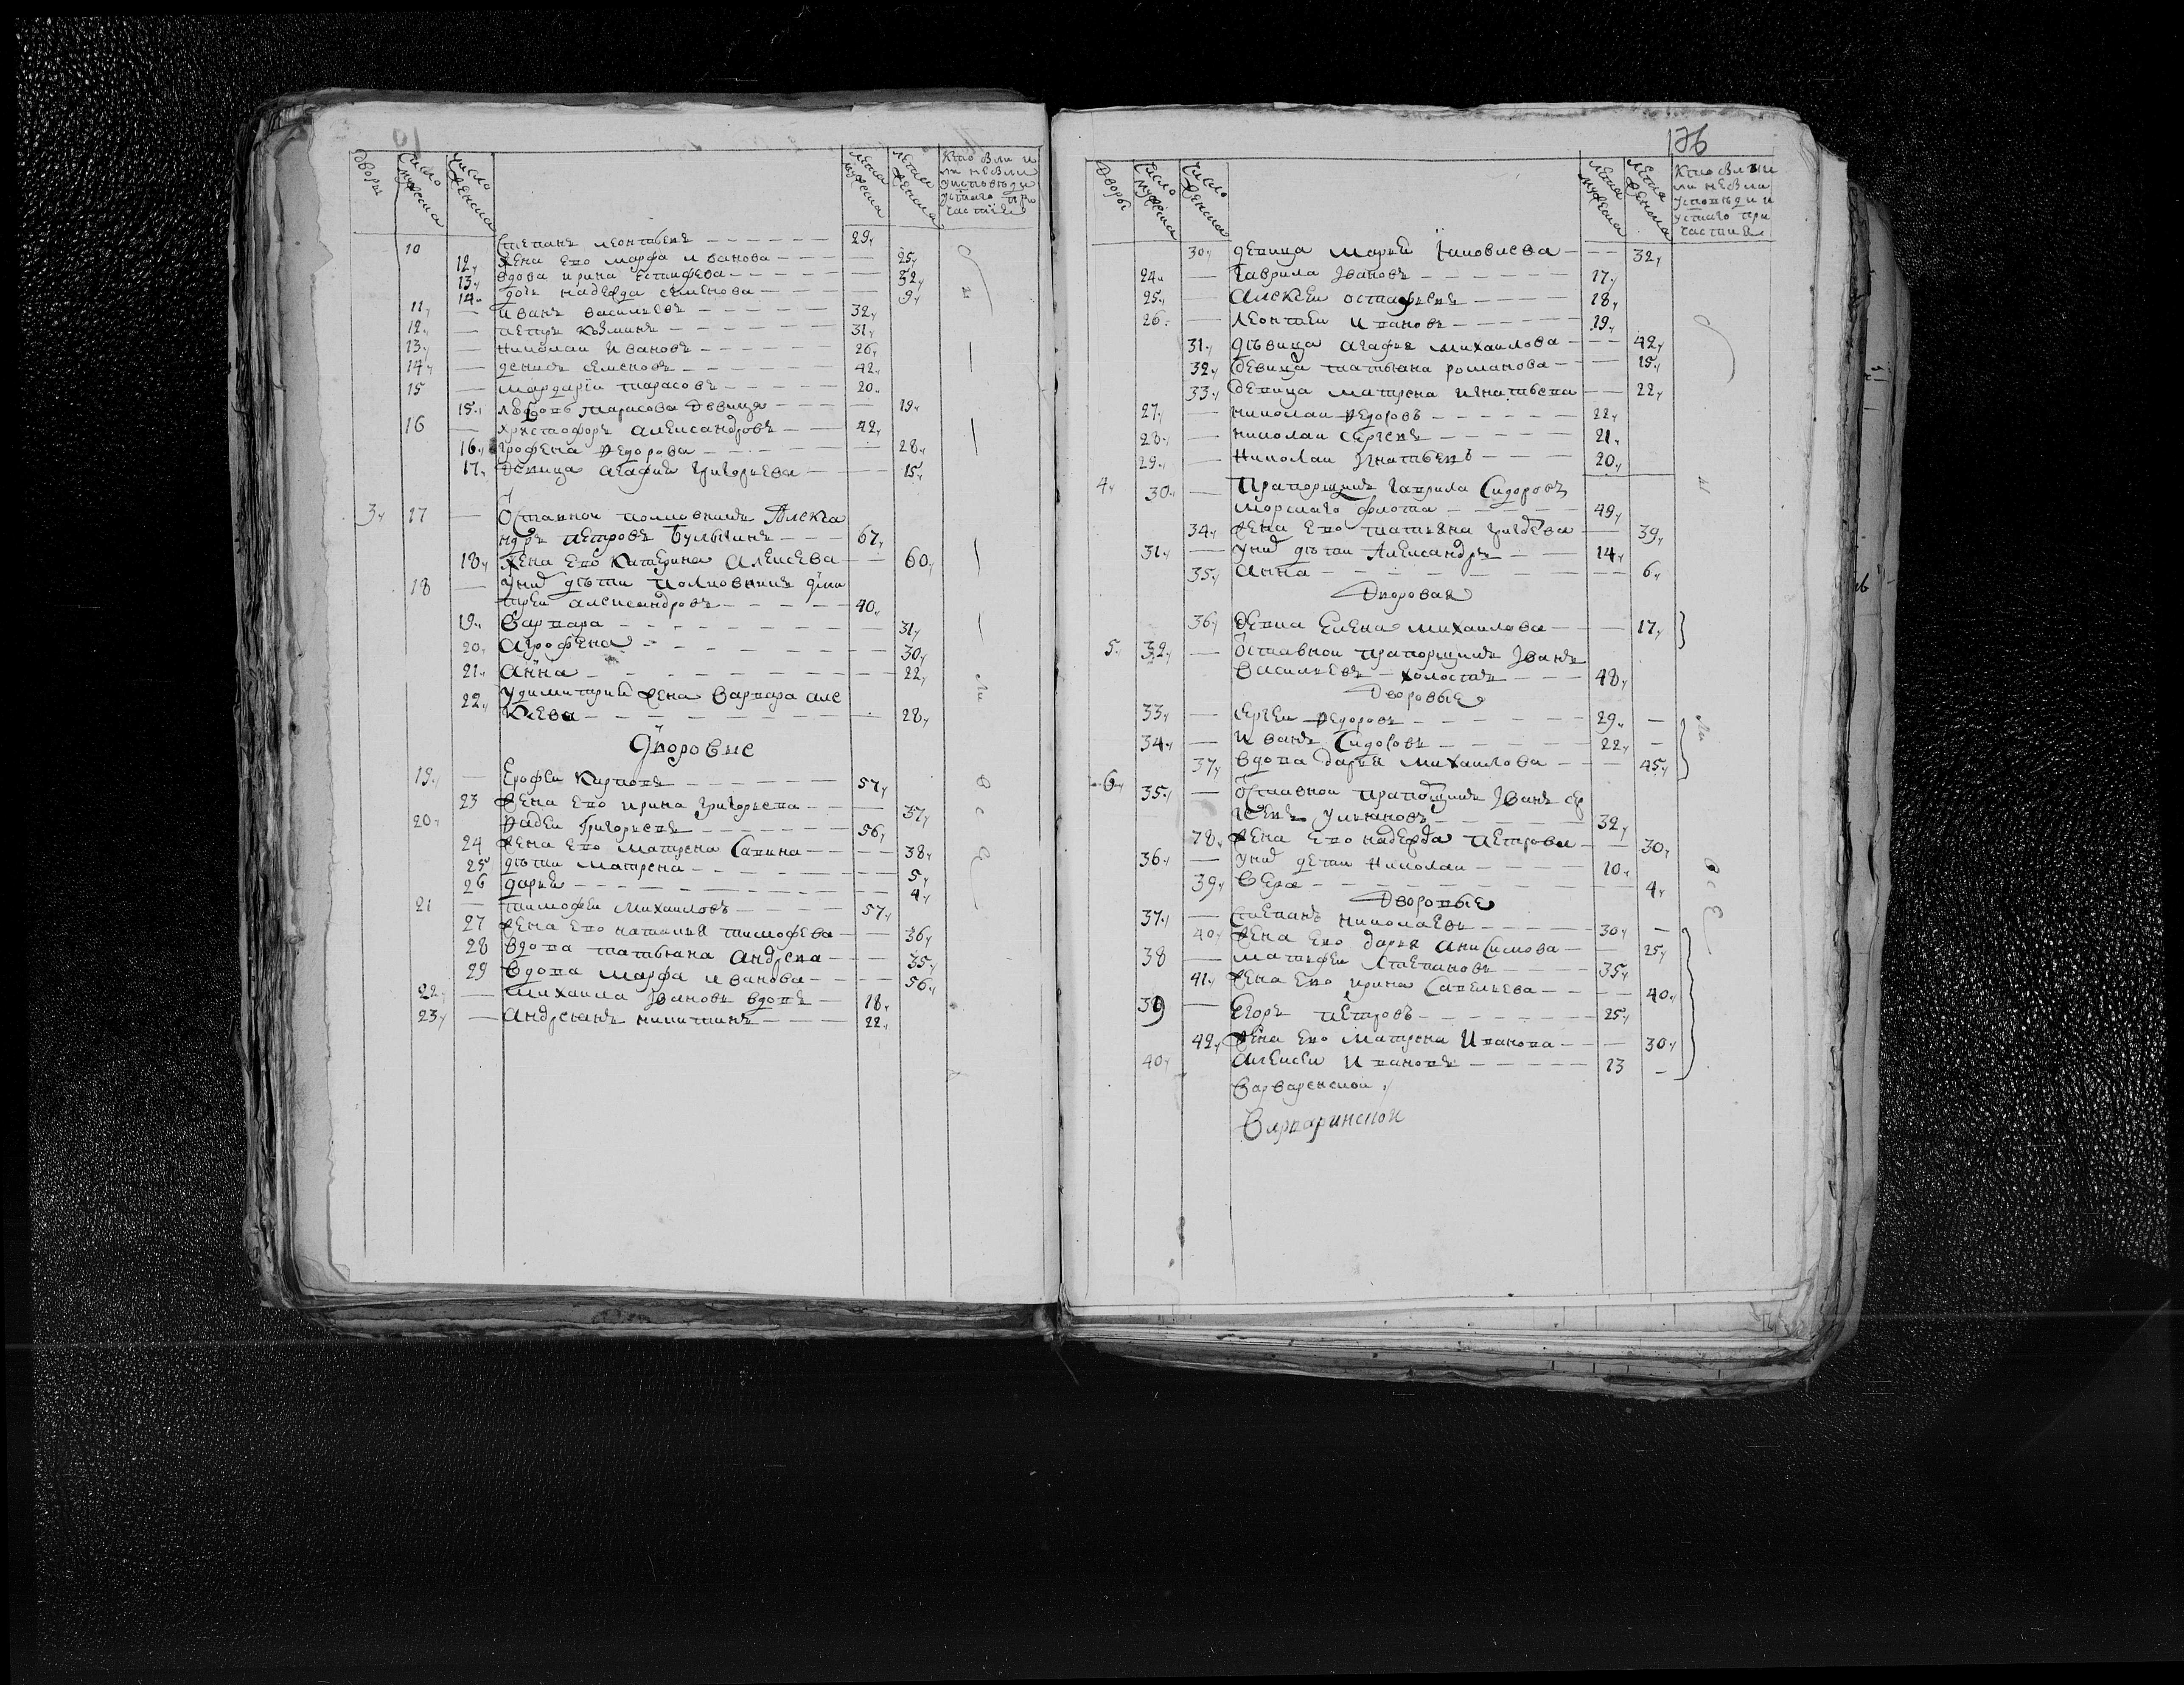 дворы
число мужеска
число женска
лета мужеска
лета женска
кто были и
ли небыли
уисповеди
устаго при
частия
10 Степанъ леонтьевъ 29
12 жена Его марфа иванова 25
13 вдова ирина Естифева 52
14 дочь надежда семенова 9
11 иванъ васильевъ 32
12 петръ козминъ 31
13 николаи ивановъ 26
14 денисъ семеновъ 42
15 мардарiи тарасовъ 20
15 любовь тарасова девица 19
16 христофоръ александровъ 42
16 грофена федорова 28
17 девица агафия григорьева 15
3 17 Отставнои полковникъ Алекса
ндръ петровъ Булыгинъ 67
18 жена Его катерина алексева 60
18 унихъ дѣти полковникъ дми
треи александровъ 40
19 варвара 31
20 агрофена 30
21 анна 22
22 удимитрия жена варвара але
ксева 28
дворовые
19 Ерофеи карповъ 57
23 жена Его ирина григорьева 37
20 фадеи григорьевъ 56
24 жена Его матрена савина 38
25 дѣти матрена 5
26 дарья 4
21 тимофеи михаиловъ 57
27 жена Его наталия тимофева 36
28 вдова татьяна андрева 35
29 вдова марфа иванова 56
22 михаила Ивановъ вдовъ 18
23 андреянъ никитинъ 22
176
дворы
число мужеска
число женска
лета мужеска
лета женска
кто были и
ли небыли
уисповеди и
устаго при
частия
30 девица мария яковлева 32
24 гаврила Ивановъ 17
25 алексеи остафьевъ 18
26 леонтеи ивановъ 19
31 дѣвица агафия михаилова 42
32 девица татьяна романова 15
33 девица матрена игнатьева 22
27 николаи федоровъ 22
28 николаи сергевъ 21
29 николаи Игнатьевъ 20
4 30 Прапорщикъ гаврила Сидоровъ
морскаго флота 49
34 жена Его татьяна 39
31 унихъ дѣти Александръ 14
35 анна 6
Дворовая
36 девка Елена михаилова 17
5 32 Отставнои прапорщикъ Иванъ
васильевъ холостъ 48
Дворовые
33 сергеи федоровъ 29
34 иванъ Сидоровъ 22
37 вдова дарья михаилова 45
6 35 Отставнои прапорщикъ Иванъ се
ргевъ 32
78 жена Его надежда петрова 30
36 унихъ дети николаи 10
39 вера 4
Дворовые
37 Степанъ николаевъ 30
40 жена Его дарья анисимова 25
38 матвеи Степановъ 35
41 жена Его ирина Савельева 40
39 Егоръ петровъ 25
42 жена Его матрена Иванова 30
40 алексеи Ивановъ 23
варваренскои
варваринскои